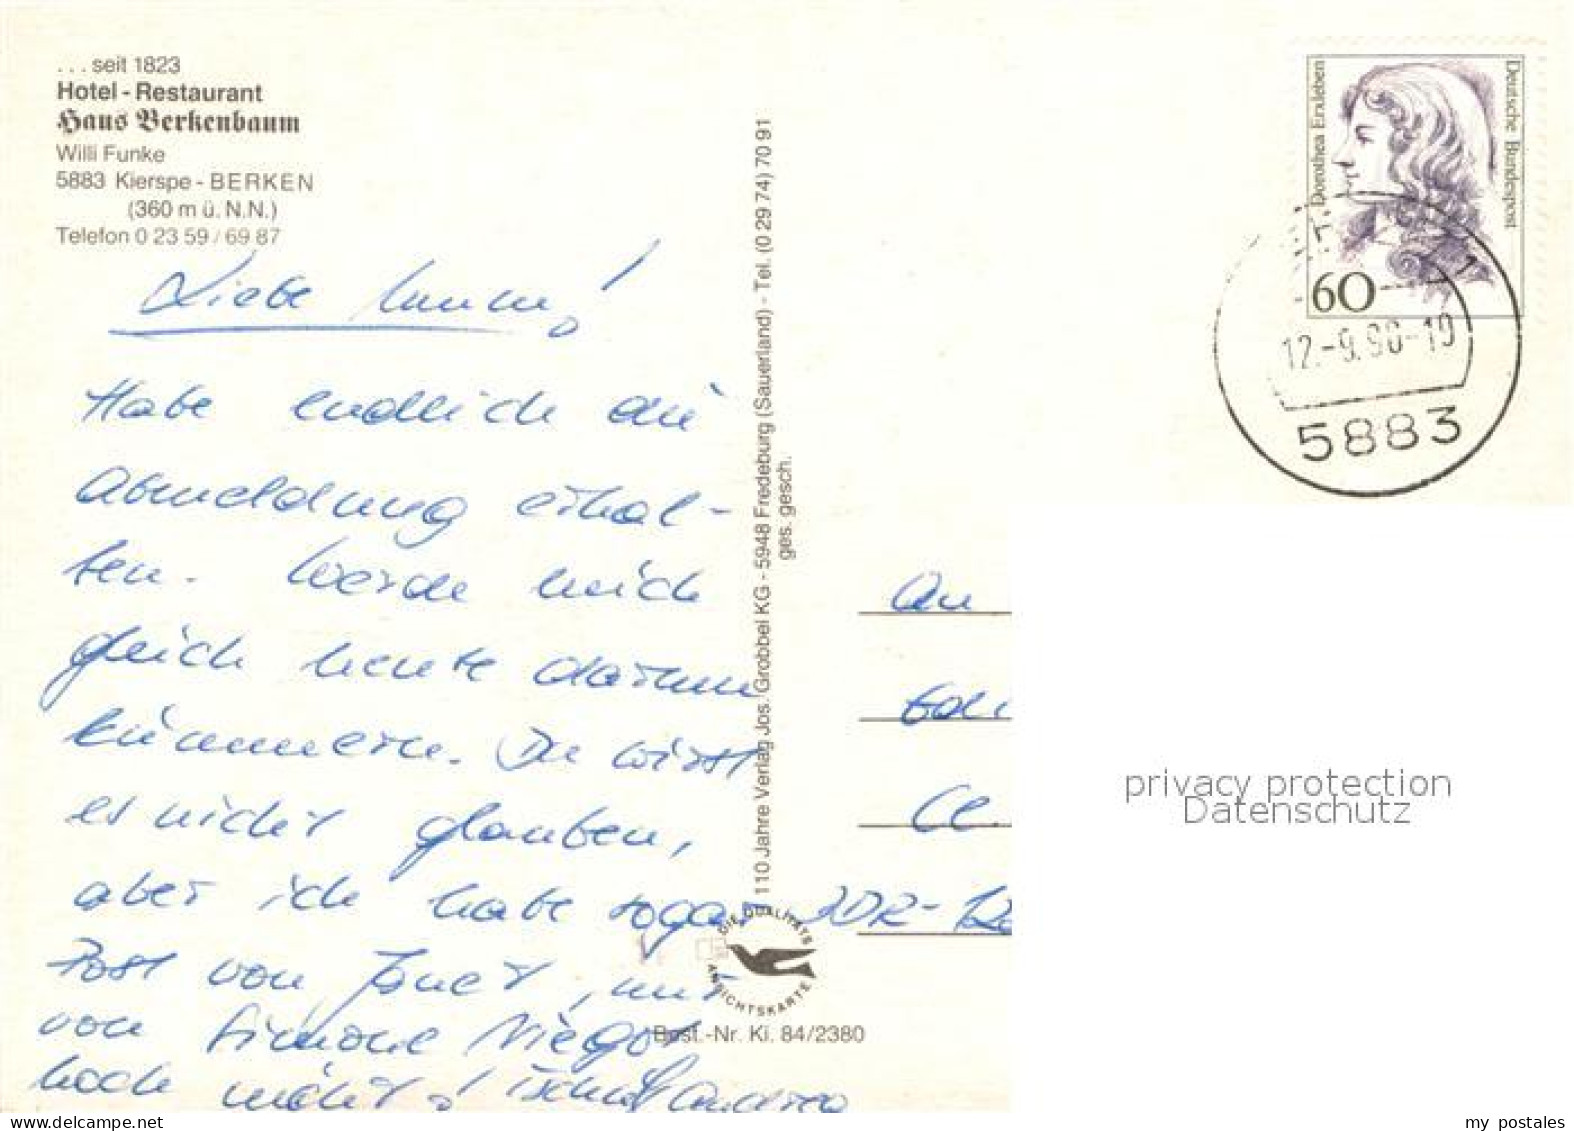 ... seit 1823
Hotel - Restaurant
Haus Berkenbaum
Willi Funke
5883 Kierspe - BERKEN
(360 m ü. N.N.)
Telefon 0 23 59 / 69 87
Liebe
Habe endlich die
Abmeldung erhal-
ten. Werde mich
gleich heute darum
kümmern. Du wirst
es nicht glauben,
aber ich habe sogar
Post von Janet, nur
von Simone Niegot
noch nicht! Tschüß Andrea
110 Jahre Verlag Jos. Grobbel KG - 5948 Fredeburg (Sauerland) - Tel. (0 29 74) 70 91
ges. gesch.
DIE QUALITÄTS
ANSICHTSKARTE
Best.-Nr. Ki. 84/2380
Dorothea Erxleben
Deutsche Bundespost
60
12.-9.90-19
5883
An
DDR-
privacy protection
Datenschutz
my postales